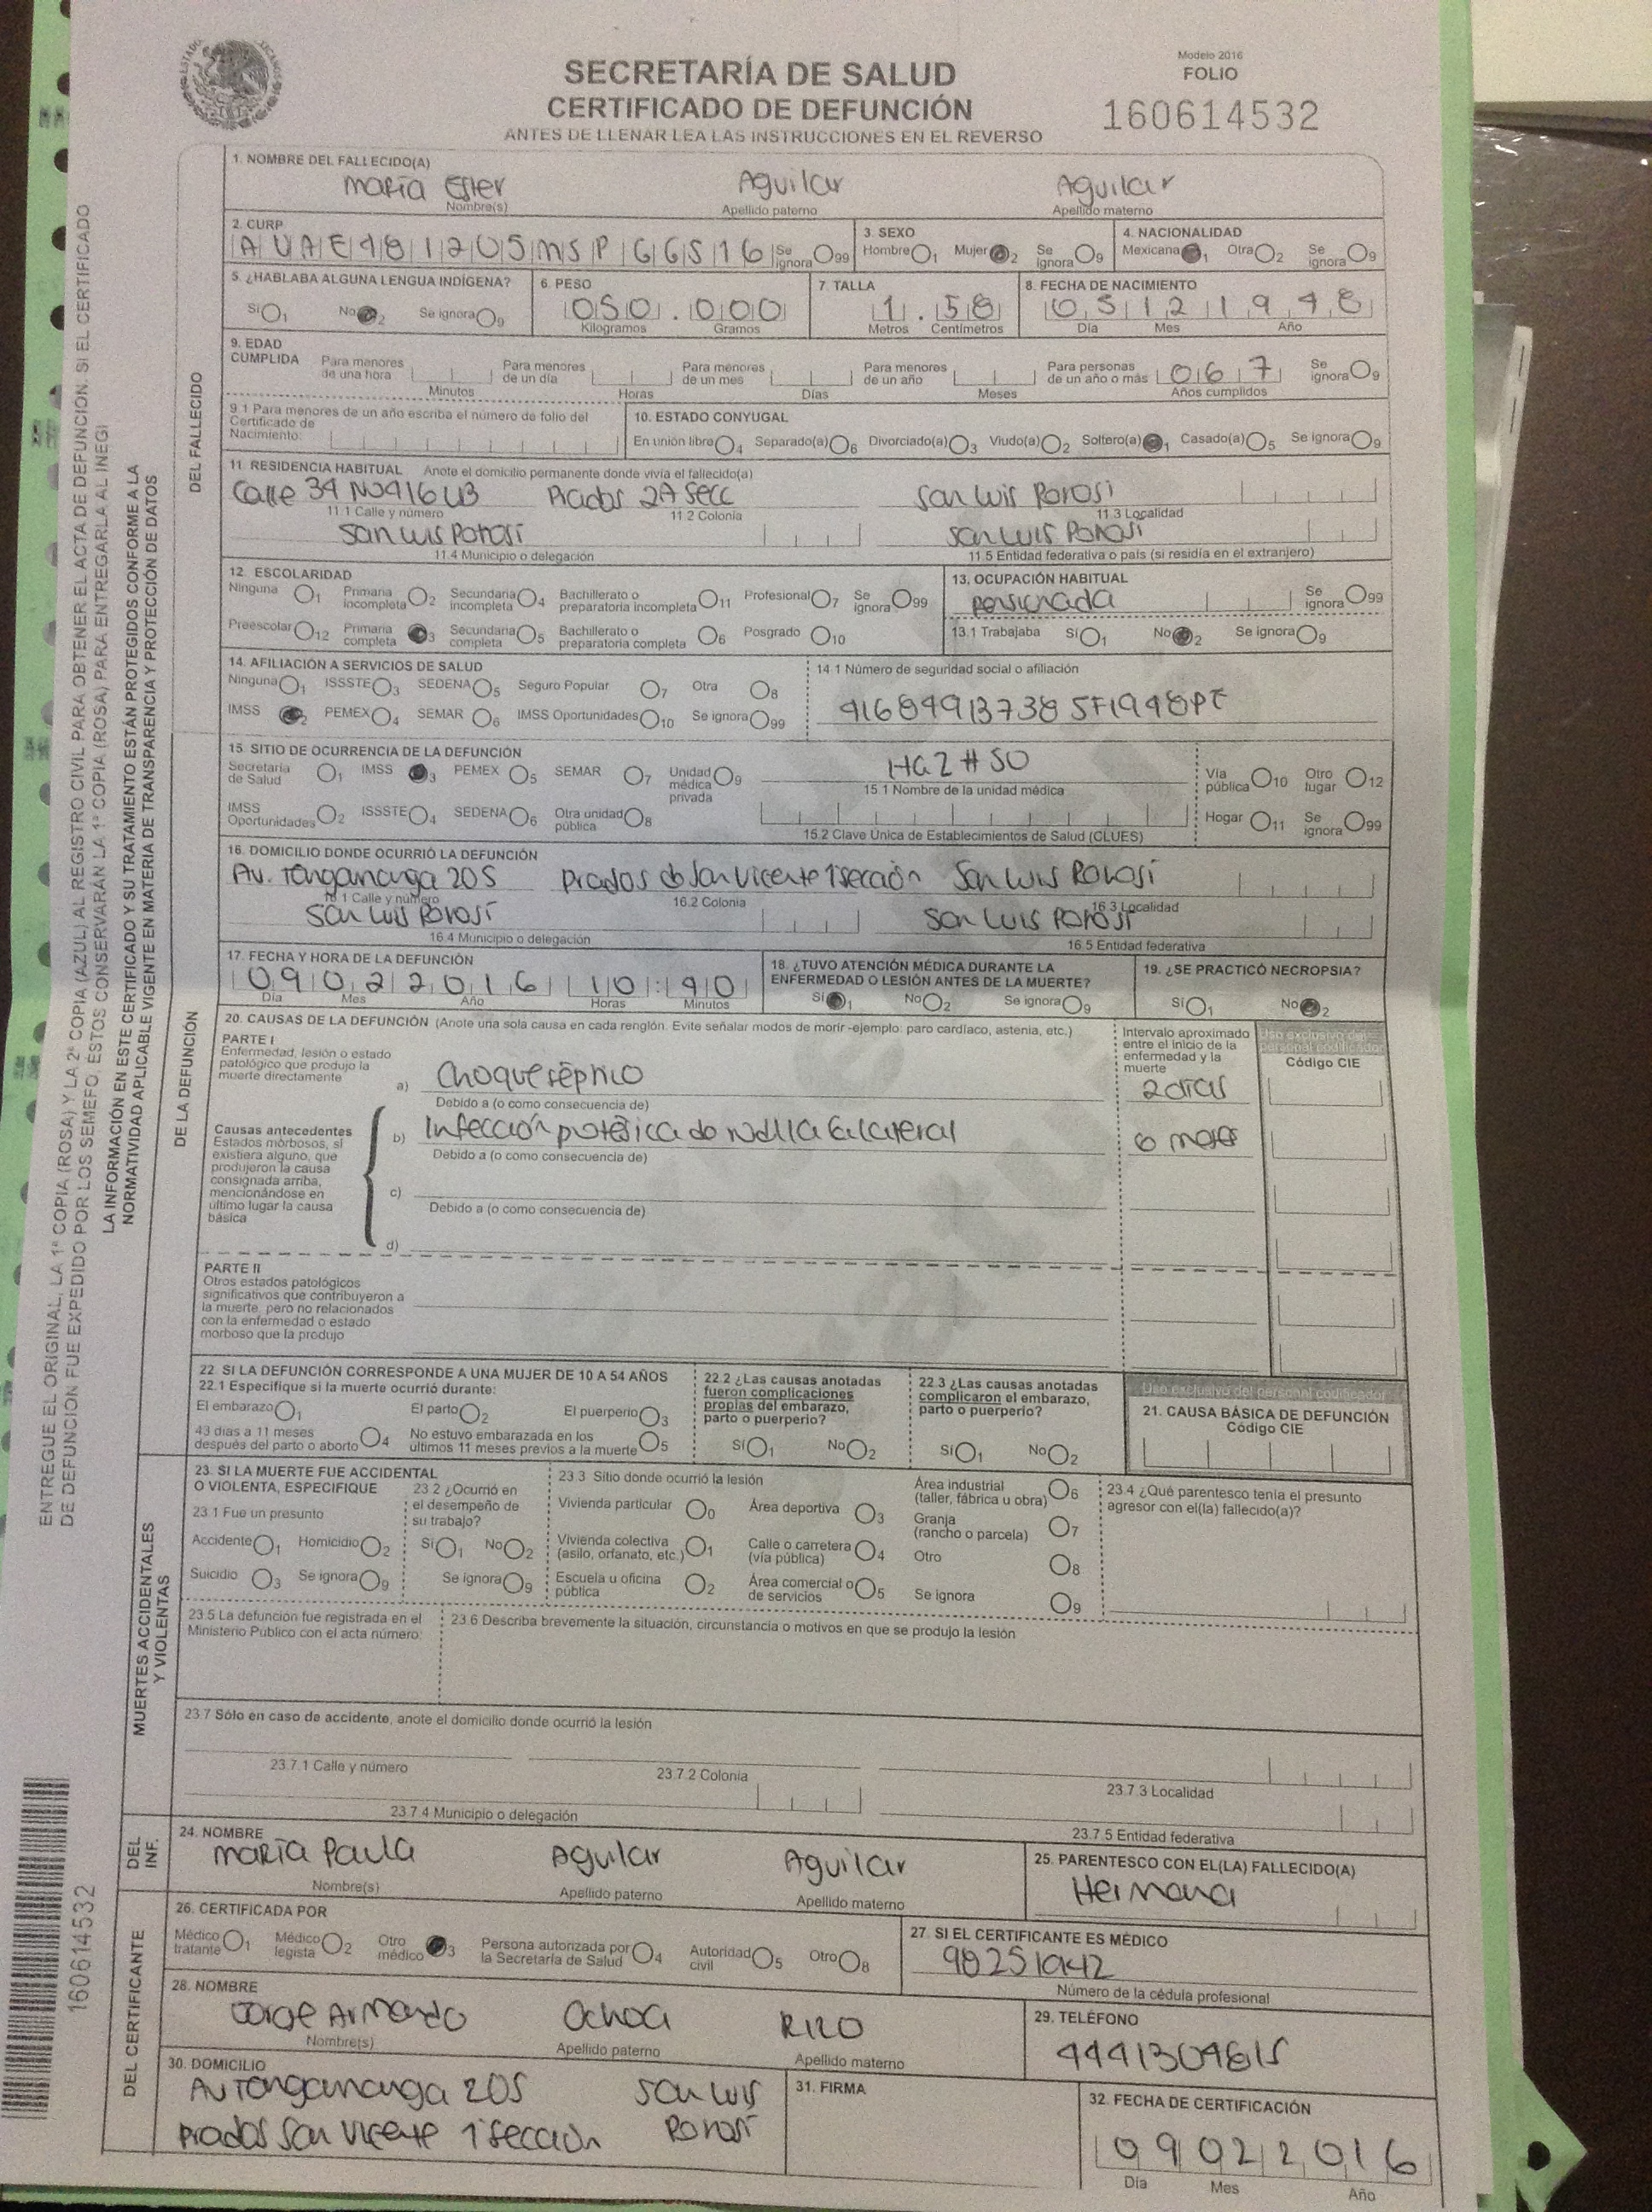 Modelo 2016
SECRETARÍA DE SALUD
FOLIO
CERTIFICADO DE DEFUNCIÓN
160614532
ANTES DE LLENAR LEA LAS INSTRUCCIONES EN EL REVERSO
ENTREGUE EL ORIGINAL, LA 1ª COPIA (ROSA) Y LA 2ª COPIA (AZUL) AL REGISTRO CIVIL PARA OBTENER EL ACTA DE DEFUNCIÓN. SI EL CERTIFICADO
DE DEFUNCIÓN FUE EXPEDIDO POR LOS SEMEFO, ÉSTOS CONSERVARÁN LA 1ª COPIA (ROSA) PARA ENTREGARLA AL INEGI
LA INFORMACIÓN EN ESTE CERTIFICADO Y SU TRATAMIENTO ESTÁN PROTEGIDOS CONFORME A LA
NORMATIVIDAD APLICABLE VIGENTE EN MATERIA DE TRANSPARENCIA Y PROTECCIÓN DE DATOS
160614532
DEL FALLECIDO
1. NOMBRE DEL FALLECIDO(A)
María Ester Aguilar Aguilar
Nombre(s) Apellido paterno Apellido materno
2. CURP 3. SEXO 4. NACIONALIDAD
Se ignora 99 Hombre 1 Mujer 2 Se ignora 9 Mexicana 1 Otra 2 Se ignora 9
5. ¿HABLABA ALGUNA LENGUA INDÍGENA? 6. PESO 7. TALLA 8. FECHA DE NACIMIENTO
Sí 1 No 2 Se ignora 9 050.000 1.58 05121948
Kilogramos Gramos Metros Centímetros Día Mes Año
9. EDAD CUMPLIDA Para menores de una hora Para menores de un día Para menores de un mes Para menores de un año Para personas de un año o más 067 Se ignora 9
Minutos Horas Días Meses Años cumplidos
9.1 Para menores de un año escriba el número de folio del Certificado de Nacimiento:
10. ESTADO CONYUGAL
En unión libre 4 Separado(a) 6 Divorciado(a) 3 Viudo(a) 2 Soltero(a) 1 Casado(a) 5 Se ignora 9
11. RESIDENCIA HABITUAL Anote el domicilio permanente donde vivía el fallecido(a)
Calle 34 Prados 2A Secc San Luis Potosí
11.1 Calle y número 11.2 Colonia 11.3 Localidad
San Luis Potosí San Luis Potosí
11.4 Municipio o delegación 11.5 Entidad federativa o país (si residía en el extranjero)
12. ESCOLARIDAD
Ninguna 1 Primaria incompleta 2 Secundaria incompleta 4 Bachillerato o preparatoria incompleta 11 Profesional 7 Se ignora 99
Preescolar 12 Primaria completa 3 Secundaria completa 5 Bachillerato o preparatoria completa 6 Posgrado 10
13. OCUPACIÓN HABITUAL
pensionada Se ignora 99
13.1 Trabajaba Sí 1 No 2 Se ignora 9
14. AFILIACIÓN A SERVICIOS DE SALUD
Ninguna 1 ISSSTE 3 SEDENA 5 Seguro Popular 7 Otra 8
IMSS 2 PEMEX 4 SEMAR 6 IMSS Oportunidades 10 Se ignora 99
14.1 Número de seguridad social o afiliación
15. SITIO DE OCURRENCIA DE LA DEFUNCIÓN
Secretaría de Salud 1 IMSS 3 PEMEX 5 SEMAR 7 Unidad médica privada 9
IMSS Oportunidades 2 ISSSTE 4 SEDENA 6 Otra unidad pública 8
HGZ #50
15.1 Nombre de la unidad médica
15.2 Clave Única de Establecimientos de Salud (CLUES)
Vía pública 10 Otro lugar 12
Hogar 11 Se ignora 99
DE LA DEFUNCIÓN
16. DOMICILIO DONDE OCURRIÓ LA DEFUNCIÓN
Av. Tangamanga 205 Prados de San Vicente 1 sección San Luis Potosí
16.1 Calle y número 16.2 Colonia 16.3 Localidad
San Luis Potosí San Luis Potosí
16.4 Municipio o delegación 16.5 Entidad federativa
17. FECHA Y HORA DE LA DEFUNCIÓN
09022016 10:40
Día Mes Año Horas Minutos
18. ¿TUVO ATENCIÓN MÉDICA DURANTE LA ENFERMEDAD O LESIÓN ANTES DE LA MUERTE?
Sí 1 No 2 Se ignora 9
19. ¿SE PRACTICÓ NECROPSIA?
Sí 1 No 2
20. CAUSAS DE LA DEFUNCIÓN (Anote una sola causa en cada renglón. Evite señalar modos de morir -ejemplo: paro cardíaco, astenia, etc.)
Intervalo aproximado entre el inicio de la enfermedad y la muerte
Uso exclusivo del personal codificador
Código CIE
PARTE I
Enfermedad, lesión o estado patológico que produjo la muerte directamente
a) Choque séptico 2 días
Debido a (o como consecuencia de)
Causas antecedentes
Estados morbosos, si existiera alguno, que produjeron la causa consignada arriba, mencionándose en último lugar la causa básica
b) Infección protésica de rodilla bilateral 6 meses
Debido a (o como consecuencia de)
c)
Debido a (o como consecuencia de)
d)
PARTE II
Otros estados patológicos significativos que contribuyeron a la muerte, pero no relacionados con la enfermedad o estado morboso que la produjo
22. SI LA DEFUNCIÓN CORRESPONDE A UNA MUJER DE 10 A 54 AÑOS
22.1 Especifique si la muerte ocurrió durante:
El embarazo 1 El parto 2 El puerperio 3
43 días a 11 meses después del parto o aborto 4 No estuvo embarazada en los últimos 11 meses previos a la muerte 5
22.2 ¿Las causas anotadas fueron complicaciones propias del embarazo, parto o puerperio?
Sí 1 No 2
22.3 ¿Las causas anotadas complicaron el embarazo, parto o puerperio?
Sí 1 No 2
Uso exclusivo del personal codificador
21. CAUSA BÁSICA DE DEFUNCIÓN
Código CIE
MUERTES ACCIDENTALES Y VIOLENTAS
23. SI LA MUERTE FUE ACCIDENTAL O VIOLENTA, ESPECIFIQUE
23.1 Fue un presunto
Accidente 1 Homicidio 2
Suicidio 3 Se ignora 9
23.2 ¿Ocurrió en el desempeño de su trabajo?
Sí 1 No 2
Se ignora 9
23.3 Sitio donde ocurrió la lesión
Vivienda particular 0 Área deportiva 3 Área industrial (taller, fábrica u obra) 6
Granja (rancho o parcela) 7
Vivienda colectiva (asilo, orfanato, etc.) 1 Calle o carretera (vía pública) 4 Otro 8
Escuela u oficina pública 2 Área comercial o de servicios 5 Se ignora 9
23.4 ¿Qué parentesco tenía el presunto agresor con el(la) fallecido(a)?
23.5 La defunción fue registrada en el Ministerio Público con el acta número:
23.6 Describa brevemente la situación, circunstancia o motivos en que se produjo la lesión
23.7 Sólo en caso de accidente, anote el domicilio donde ocurrió la lesión
23.7.1 Calle y número 23.7.2 Colonia 23.7.3 Localidad
23.7.4 Municipio o delegación 23.7.5 Entidad federativa
DEL INF.
24. NOMBRE
María Paula Aguilar Aguilar
Nombre(s) Apellido paterno Apellido materno
25. PARENTESCO CON EL(LA) FALLECIDO(A)
Hermana
DEL CERTIFICANTE
26. CERTIFICADA POR
Médico tratante 1 Médico legista 2 Otro médico 3 Persona autorizada por la Secretaría de Salud 4 Autoridad civil 5 Otro 8
27. SI EL CERTIFICANTE ES MÉDICO
Número de la cédula profesional
28. NOMBRE
Jorge Armando Ochoa Rizo
Nombre(s) Apellido paterno Apellido materno
29. TELÉFONO
4441304815
30. DOMICILIO
Av Tangamanga 205 San Luis
Prados San Vicente 1 sección Potosí
31. FIRMA
32. FECHA DE CERTIFICACIÓN
09022016
Día Mes Año